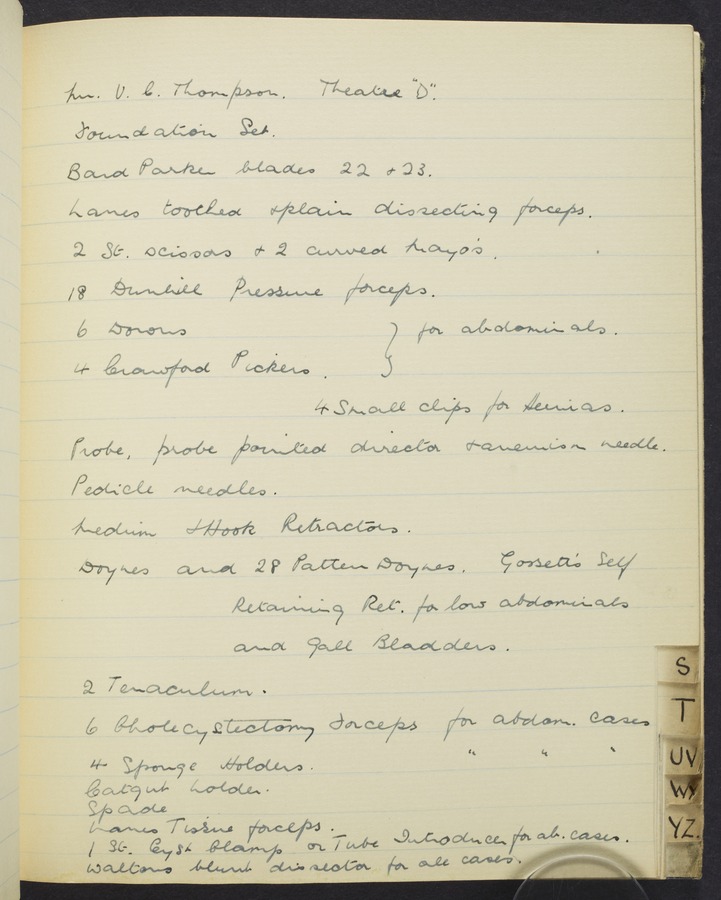 Mr. V. C. Thompson. Theatre "D".
Foundation Set.
Bard Parker blades 22 + 23.
Lanes toothed + plain dissecting forceps.
2 St. scissors + 2 curved Mayo's.
18 Dunhill Pressure forceps.
6 Doyens } for abdominals.
4 Crawford Pickers.
4 Small clips for Hernias.
Probe, probe pointed director + aneurism needle.
Pedicle needles.
Medium + Hook Retractors.
Doynes and 28 Patten Doynes. Gossett's Self
Retaining Ret. for low abdominals
and Gall Bladders.
2 Tenaculum.
6 Cholecystectomy Forceps for abdom. cases
4 Sponge Holders. " " "
Catgut holder.
Spade
Lanes Tissue forceps.
1 St. Cyst Clamp or Tube Introducer for ab. cases.
Waltons blunt dissector for all cases.
S
T
UV
WX
YZ.